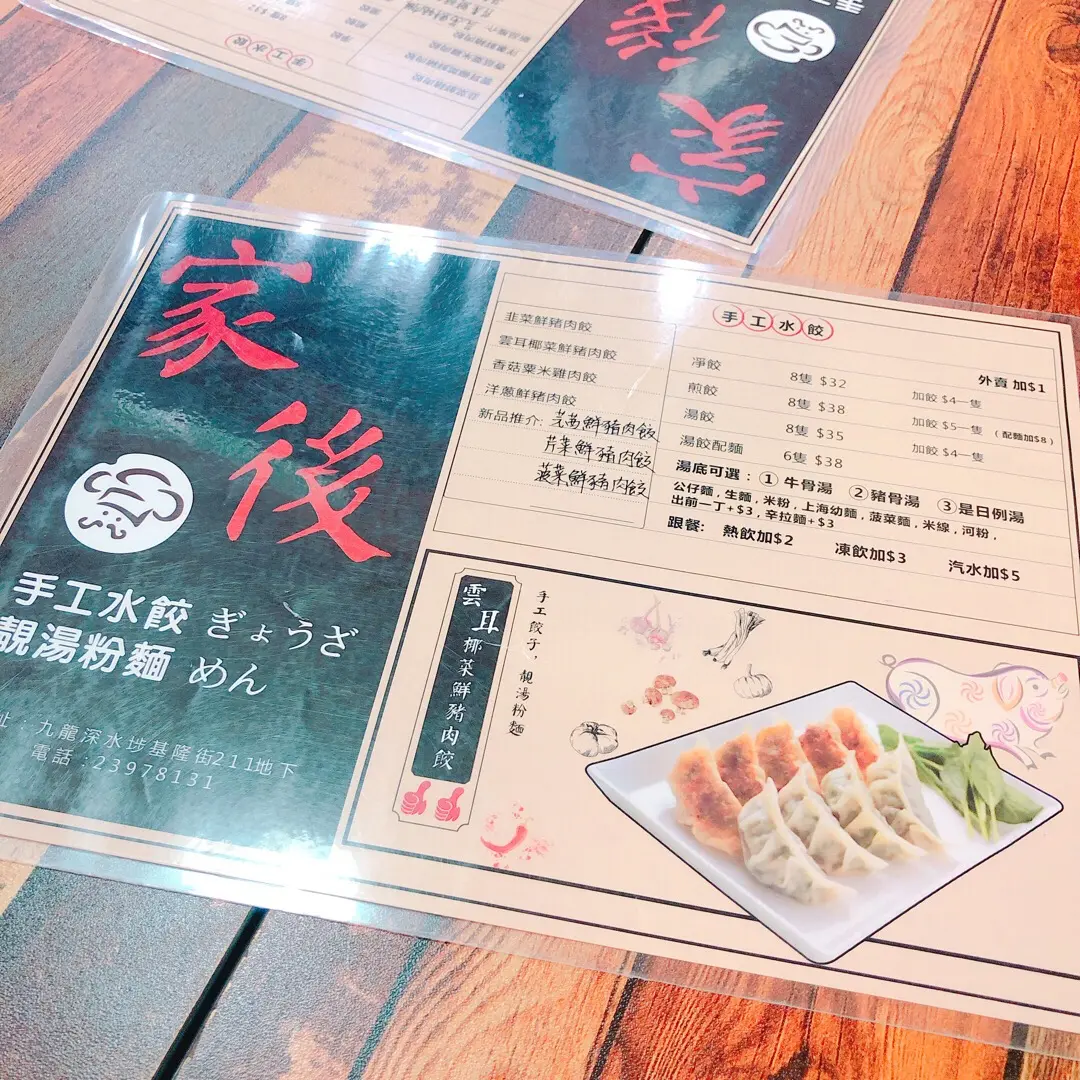 家後
手工水餃 ぎょうざ
靚湯粉麵 めん
址：九龍深水埗基隆街211地下
電話：23978131
韭菜鮮豬肉餃
雲耳椰菜鮮豬肉餃
香菇粟米雞肉餃
洋蔥鮮豬肉餃
新品推介: 芫茜鮮豬肉餃
芹菜鮮豬肉餃
菠菜鮮豬肉餃
手工水餃
外賣 加$1
凈餃 8隻 $32 加餃 $4一隻
煎餃 8隻 $38 加餃 $5一隻 (配麵加$8)
湯餃 8隻 $35 加餃 $4一隻
湯餃配麵 6隻 $38
湯底可選：①牛骨湯 ②豬骨湯 ③是日例湯
公仔麵，生麵，米粉，上海幼麵，菠菜麵，米線，河粉，
出前一丁+$3，辛拉麵+$3
跟餐: 熱飲加$2 凍飲加$3 汽水加$5
雲耳椰菜鮮豬肉餃
手工餃子，靚湯粉麵
家後
手工水餃